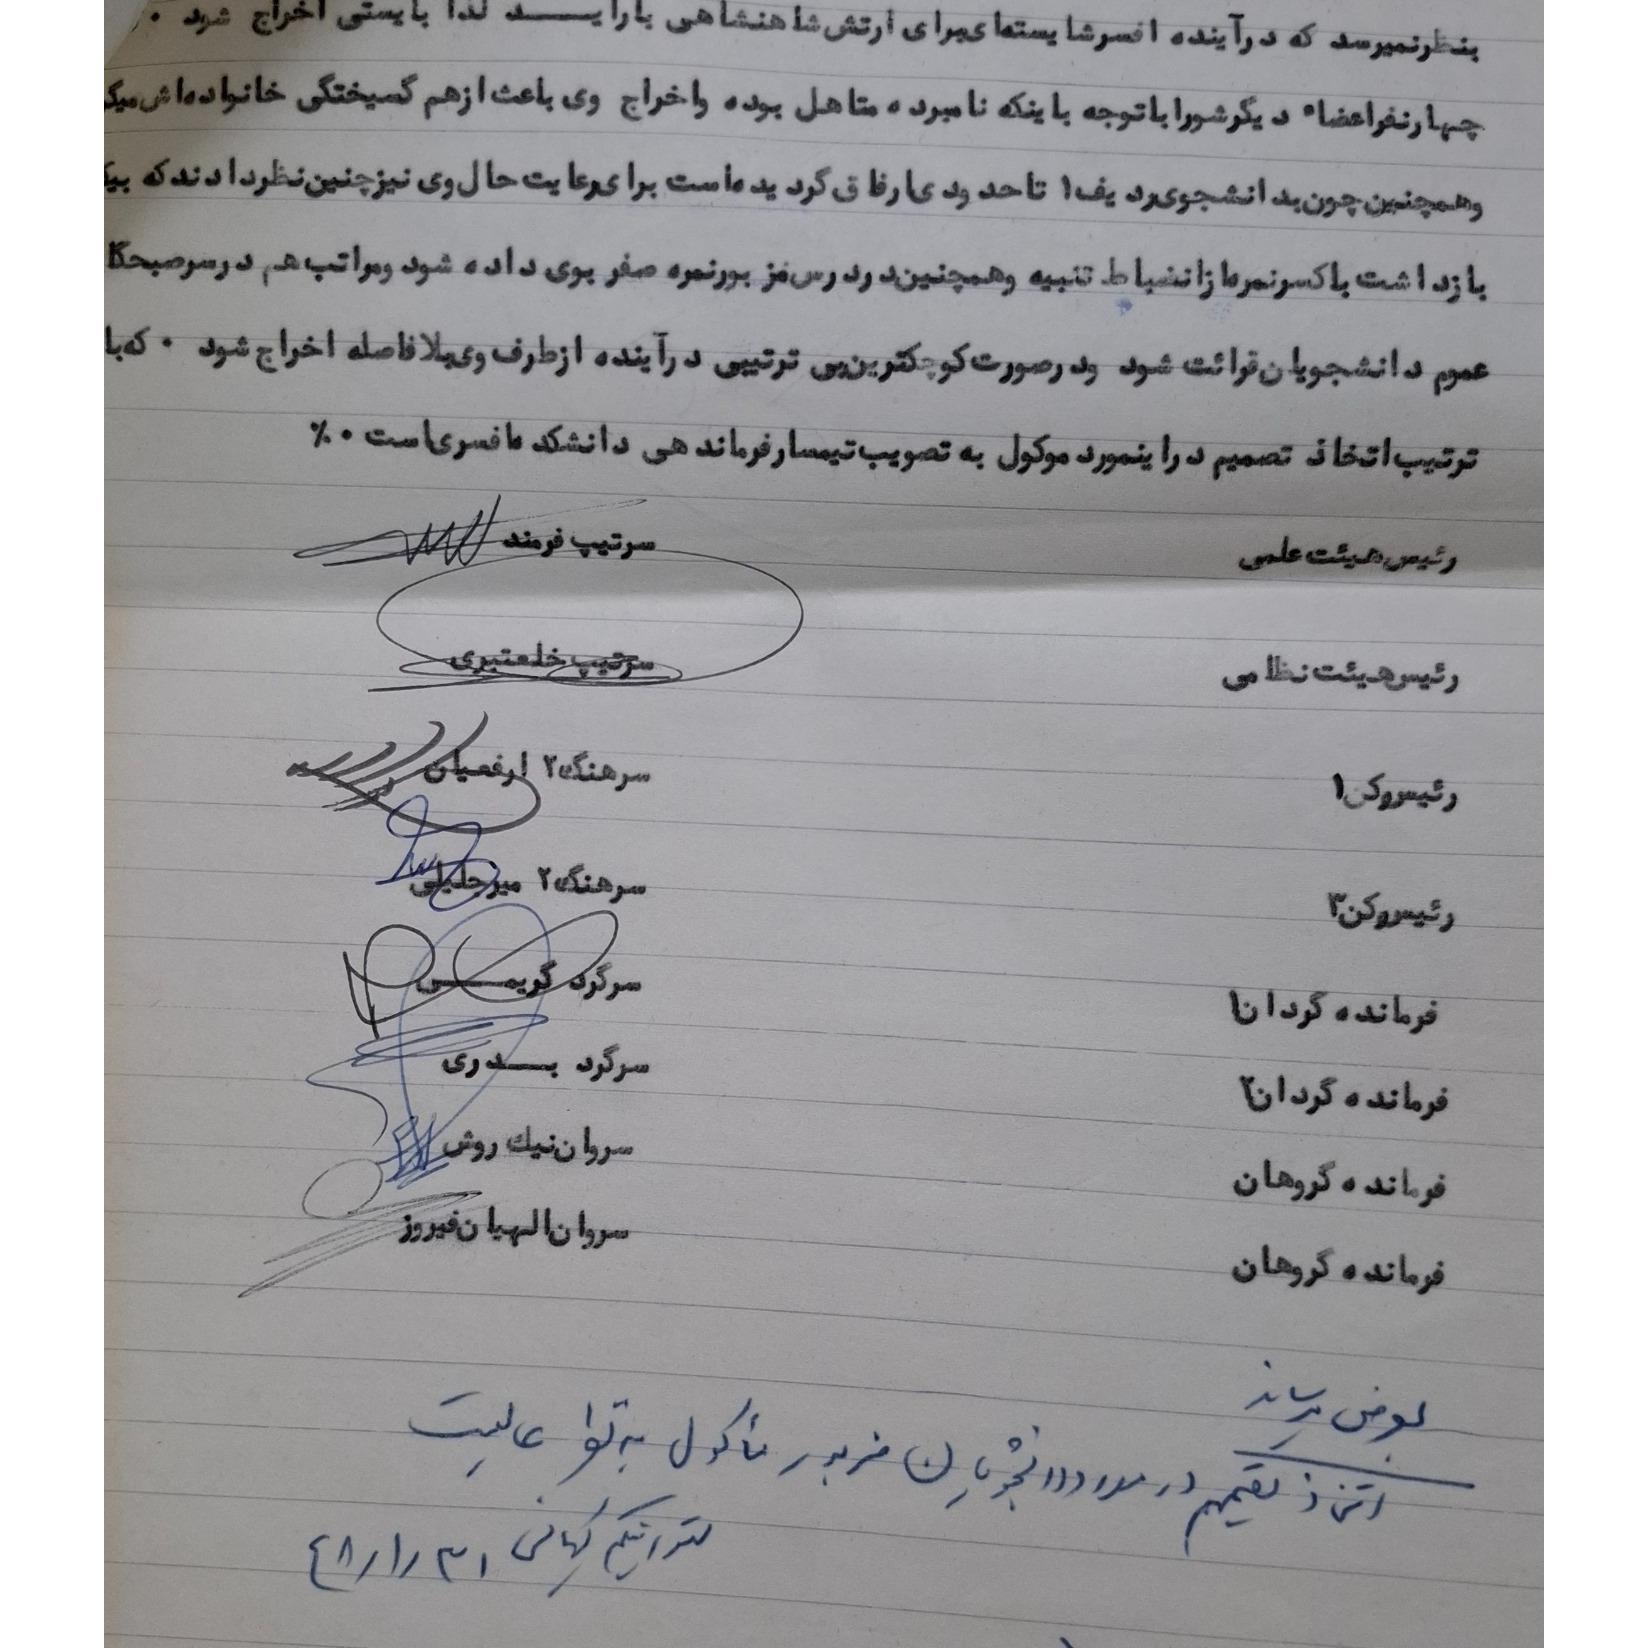 بنظرنمیرسد که درآینده افسرشایسته‌ای‌برای ارتش‌شاهنشاهی بارآیـــــد لذا بایستی اخراج شود ۰
چهارنفراعضاء دیگرشوراباتوجه باینکه نامبرده متاهل بوده واخراج وی باعث ازهم گسیختگی خانواده‌اش
وهمچنین‌چون‌بدانشجوی‌ردیف۱ تاحدودی‌ارفاق‌گردیده‌است برای‌رعایت‌حال‌وی نیزچنین‌نظردادندکه
بازداشت باکسرنمره‌ازانضباط تنبیه وهمچنین‌دردرس‌مزبورنمره صفر بوی داده شود ومراتب‌هم درسرصبحگا
عموم دانشجویان‌قرائت شود ودرصورت‌کوچکترین‌بی ترتیبی درآینده ازطرف‌وی‌بلافاصله اخراج شود ۰ که‌با
ترتیب‌اتخاذ تصمیم دراینمورد موکول به تصویب‌تیمسارفرماندهی دانشکده‌افسری‌است ۰٪
رئیس‌هیئت‌علمی سرتیپ فرمند
رئیس‌هیئت‌نظامی سرتیپ خلعتبری
رئیس‌رکن۱ سرهنگ۲ ارفعیان
رئیس‌رکن۳ سرهنگ۲ میرجلیلی
فرمانده گردان۱ سرگرد کریمـــی
فرمانده گردان۲ سرگرد بـــدری
فرمانده گروهان سروان‌نیك روش
فرمانده گروهان سروان‌الهیان‌فیروز
بعرض میرساند
اتخاذ تصمیم در مورد دانشجویان مزبور